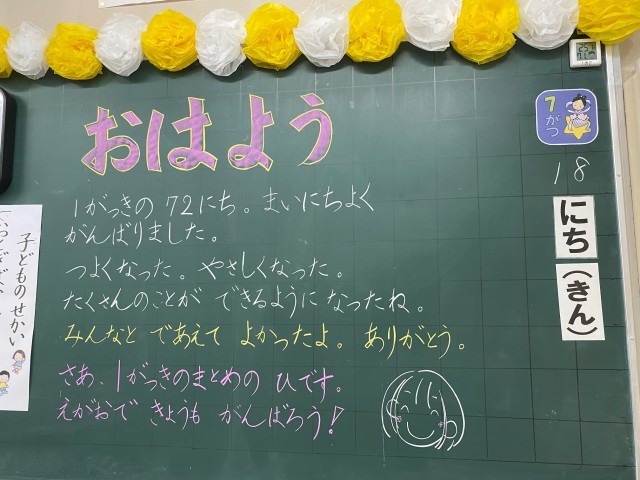 おはよう
1がっきの 72にち。まいにちよく
がんばりました。
つよくなった。やさしくなった。
たくさんのことが できるように なったね。
みんなと であえて よかったよ。ありがとう。
さあ、1がっきのまとめの ひです。
えがおで きょうも がんばろう!
7がつ
18
にち
(きん)
子どものせかい